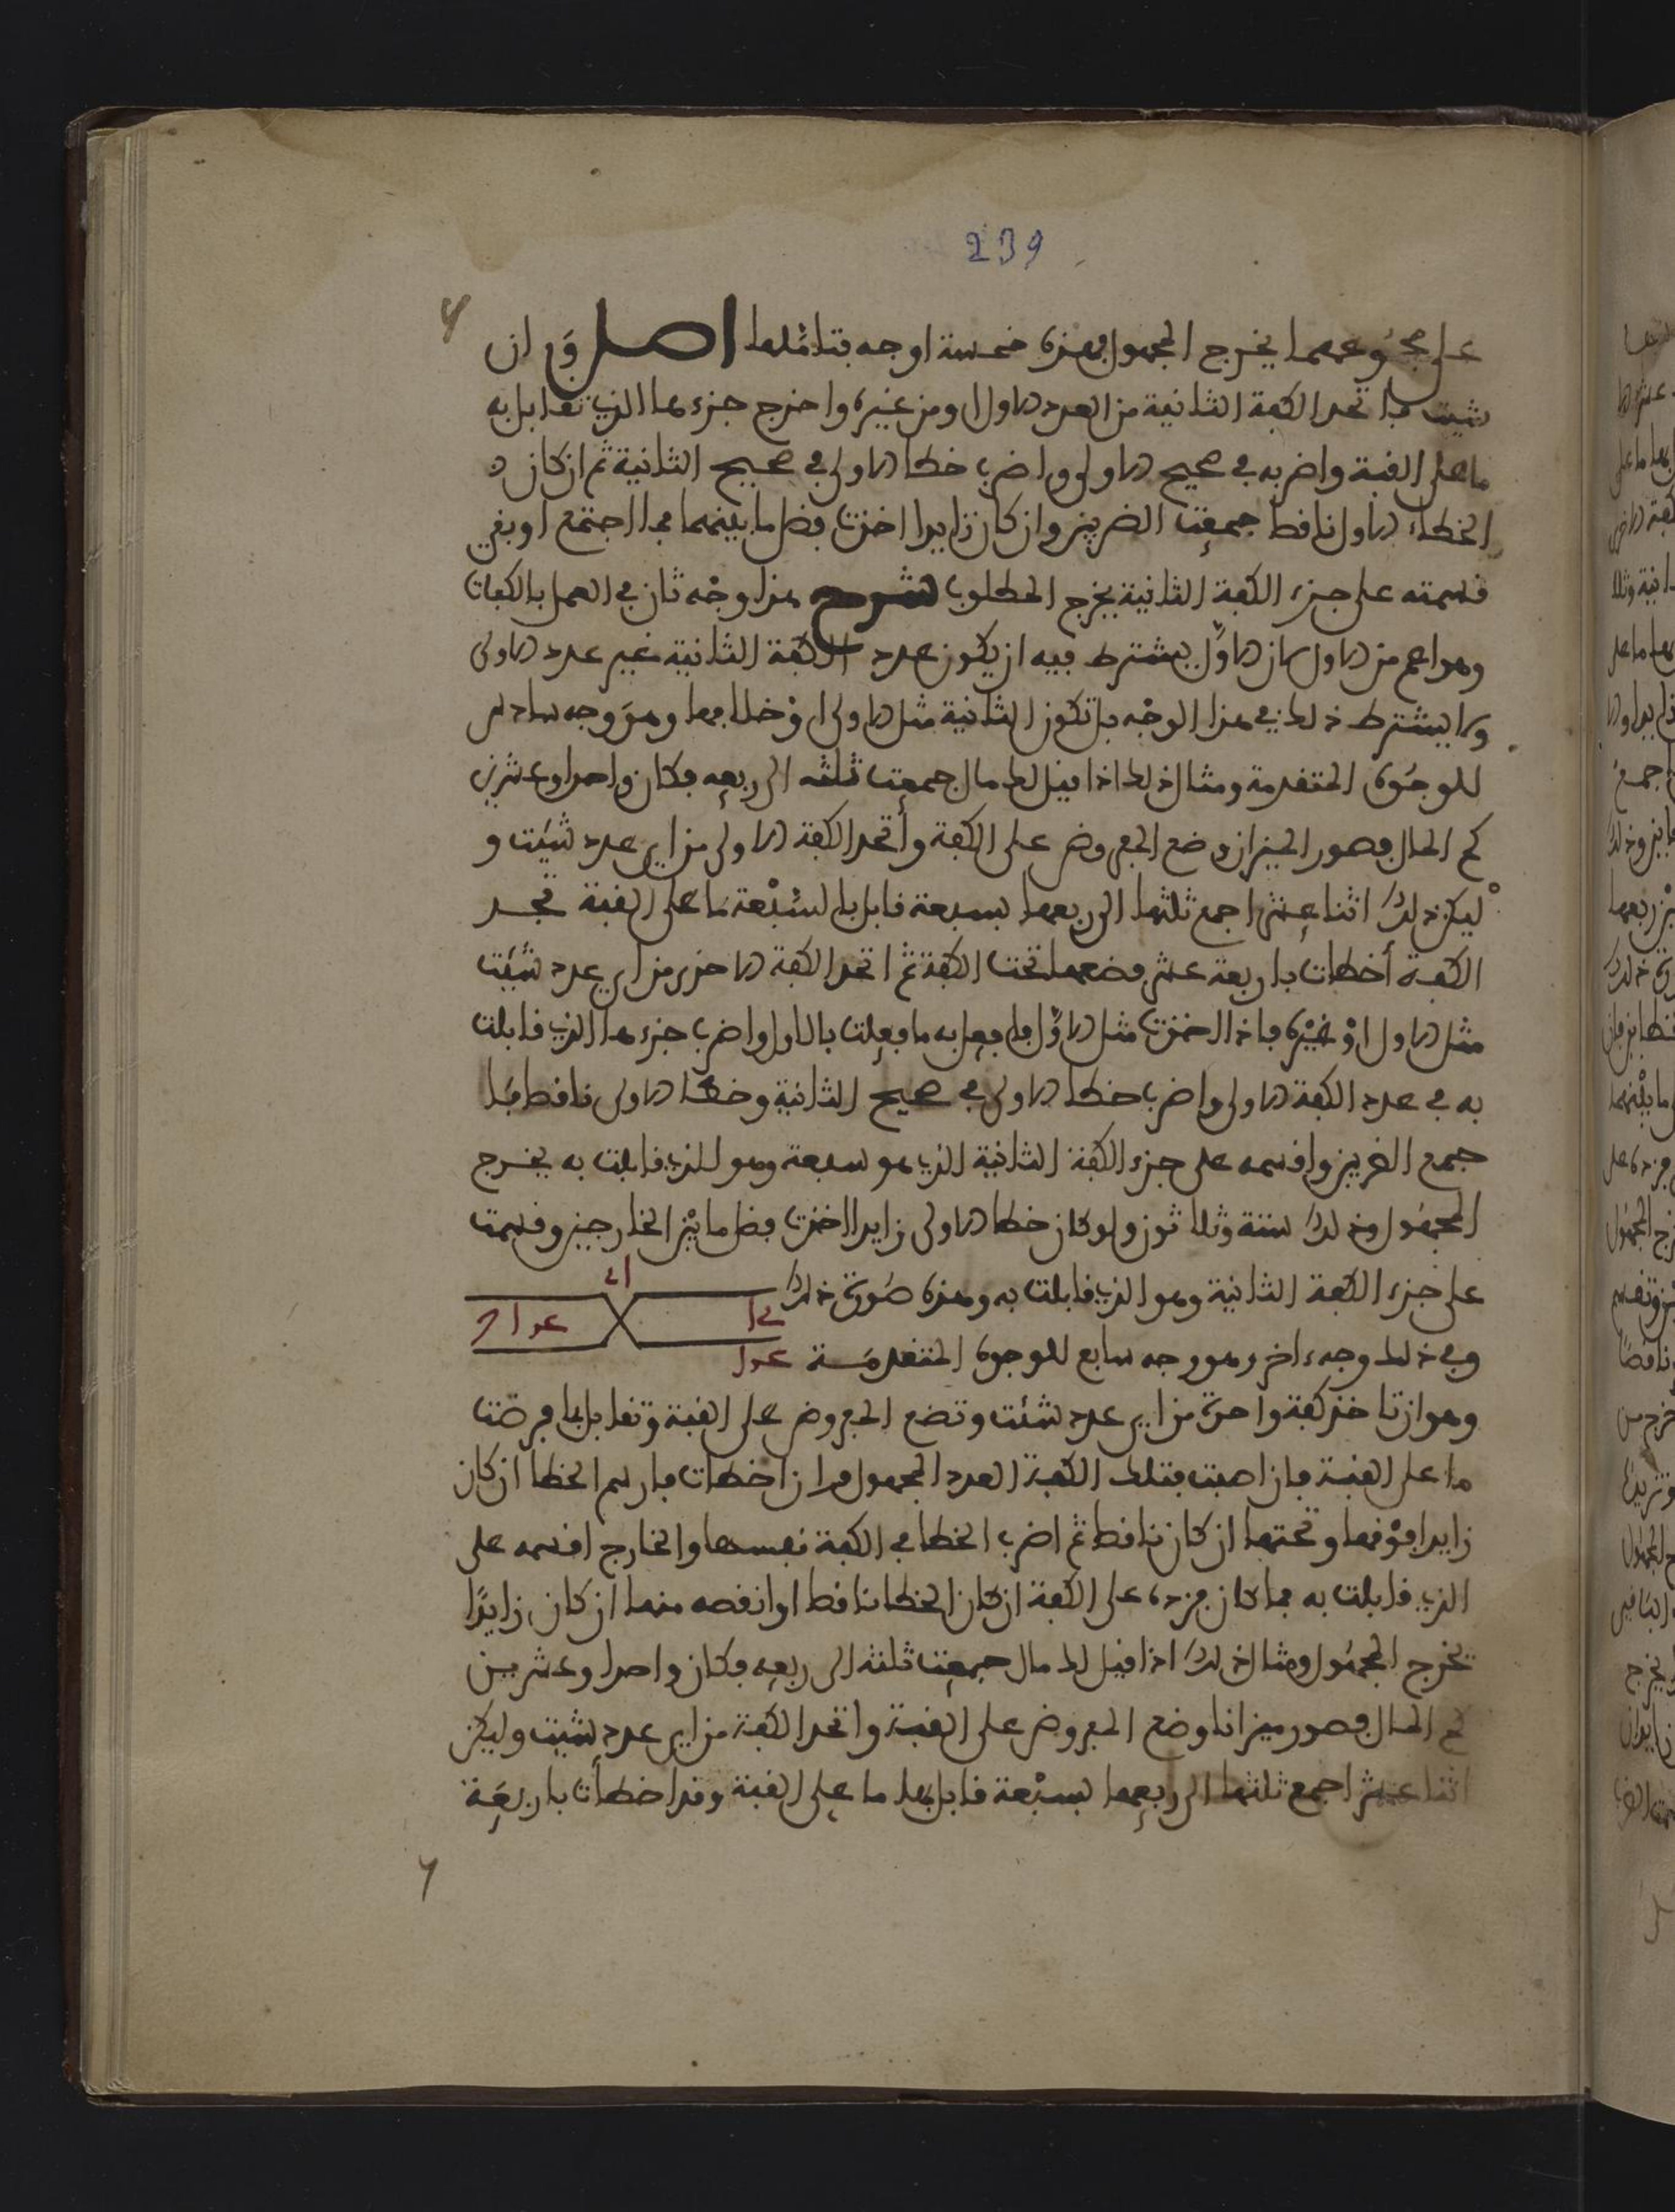 239
على مجموعهما يخرج المجهول فهذه خمسة اوجه فتاملها اصل وان
شيت فاتخذ الكفة الثانية من العدد الاول او من غيره واخرج جزءها الذي تقابل به
ما على القبة واضربه في صحيح الاولى واضرب خطا الاولى في صحيح الثانية ثم ان كان
الخطاء الاول ناقصا جمعت الضربين وان كان زايدا اخذت فضل ما بينهما فما اجتمع او بقي
قسمته على جزء الكفة الثانية يخرج المطلوب شرح هذا وجه ثان في العمل بالكفات
وهو اعم من الاول لان الاول يشترط فيه ان يكون عدد الكفة الثانية غير عدد الاولى
ولا يشترط ذلك في هذا الوجه بل تكون الثانية مثل الاولى او خلافها وهو وجه سادس
للوجوه المتقدمة ومثال ذلك اذا قيل لك مال جمعت ثلثه الى ربعه فكان واحدا وعشرين
كم المال فصور الميزان وضع المفروض على الكفة واتخذ الكفة الاولى من اي عدد شيت و
ليكن ذلك اثنا عشر اجمع ثلثها الى ربعها بسبعة قابل بالسبعة ما على القبة تجد
الكفة أخطات باربعة عشر فضعها تحت الكفة ثم اتخذ الكفة الاخرى من اي عدد شيت
مثل الاول او غيره فاذا اخذت مثل الاول فافعل به ما فعلت بالاول واضرب جزءها الذي قابلت
به في عدد الكفة الاولى واضرب خطا الاولى في صحيح الثانية وخطا الاولى ناقص فبا
جمع الضربين واقسمه على جزء الكفة الثانية الذي هو سبعة وهو الذي قابلت به يخرج
المجهول وذلك ستة وثلاثون ولو كان خطا الاولى زايدا اخذت فضل ما بين الخارجين وقسمت
على جزء الكفة الثانية وهو الذي قابلت به وهذه صورة ذلك
وفي ذلك وجه ءاخر وهو وجه سابع للوجوه المتقدمة
وهو ان تاخذ كفة واحدة من اي عدد شئت وتضع المفروض على القبة وتقابل بما فرضت
ما على القبة فان اصبت فتلك الكفة العدد المجهول وان اخطات فارسم الخطا ان كان
زايدا فوقها وتحتها ان كان ناقصا ثم اضرب الخطا في الكفة نفسها والخارج اقسمه على
الذي قابلت به فما كان فزده على الكفة ان كان الخطا ناقصا او انقصه منها ان كان زايدًا
يخرج المجهول ومثال ذلك اذا قيل لك مال جمعت ثلثه الى ربعه فكان واحدا وعشرين
كم المال فصور ميزانا وضع المفروض على القبة واتخذ الكفة من اي عدد شيت وليكن
اثنا عشر اجمع ثلثها الى ربعها بسبْعة قابل بها ما على القبة وقد اخطأت باربعَة